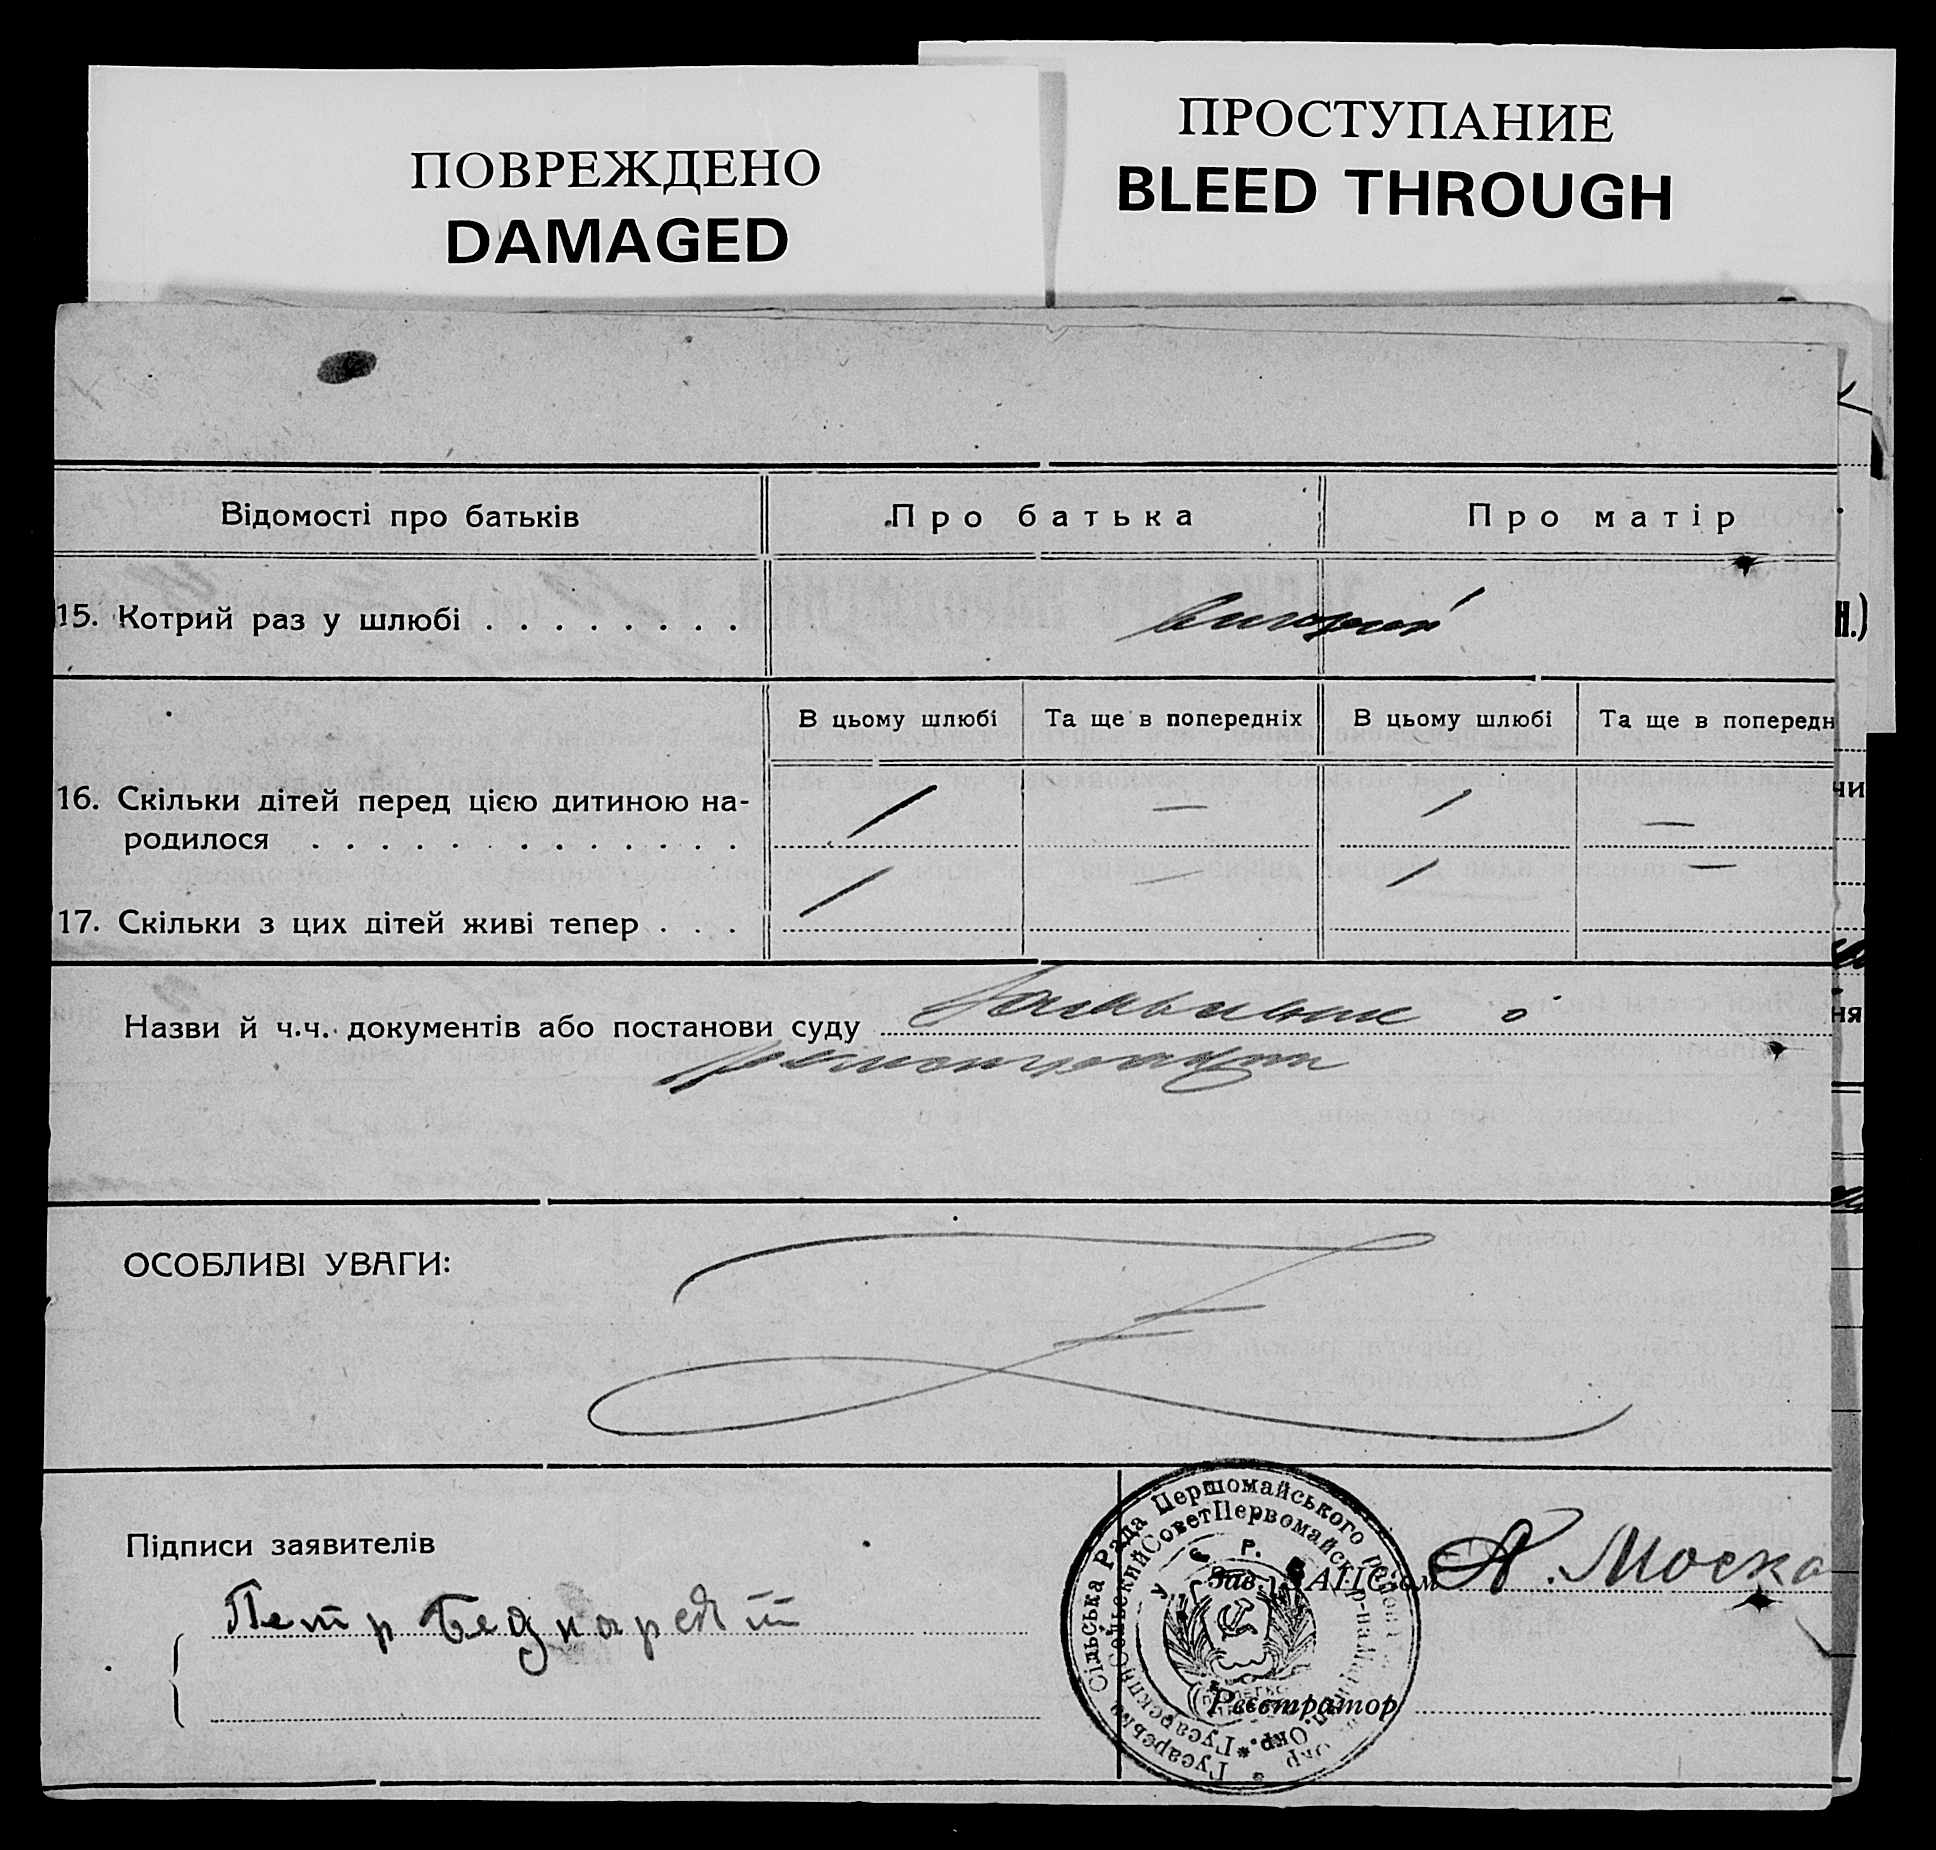 ПОВРЕЖДЕНО
DAMAGED
ПРОСТУПАНИЕ
BLEED THROUGH
Відомості про батьків
Про батька
Про матір
15. Котрий раз у шлюбі . . . . . . . .
Н.)
В цьому шлюбі
Та ще в попередніх
В цьому шлюбі
Та ще в попередн
16. Скільки дітей перед цією дитиною на-
родилося . . . . . . . . . . . . .
/ — / —
17. Скільки з цих дітей живі тепер . . .
/ — / —
Назви й ч.ч. документів або постанови суду
ОСОБЛИВІ УВАГИ:
Підписи заявителів
Петр
Зав. ЗАПС'ом А. Моска
Реєстратор
Гусарська Сільська Рада Першомайського
Гусарский Сельский Совет Первомайск. р-на
У. С. Р. Р.